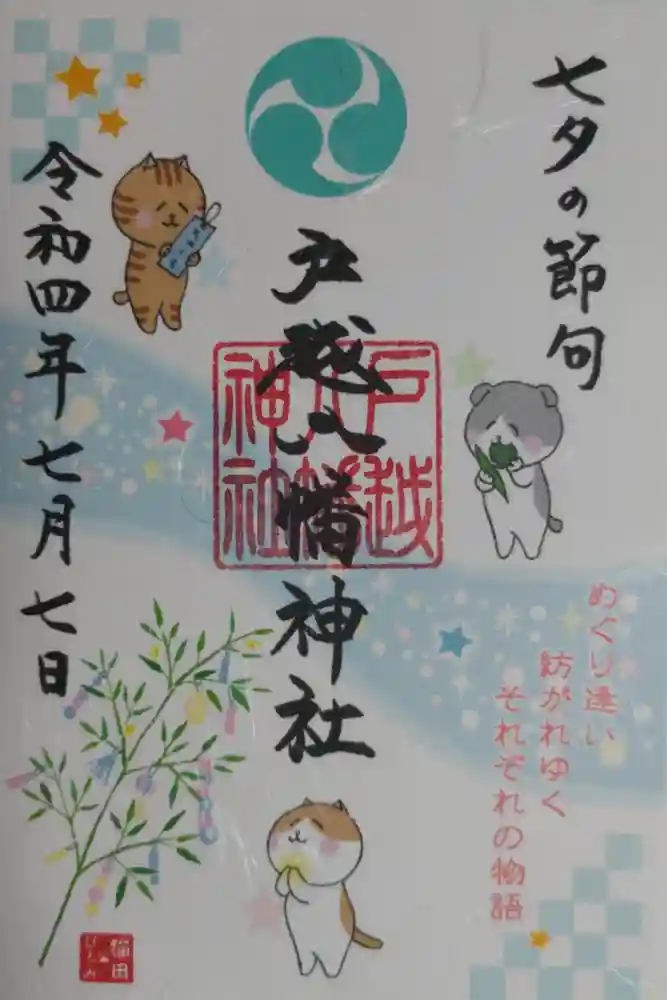 七夕の節句
戸越八幡神社
戸越
八幡
神社
令和四年七月七日
めぐり逢い
紡がれゆく
それぞれの物語